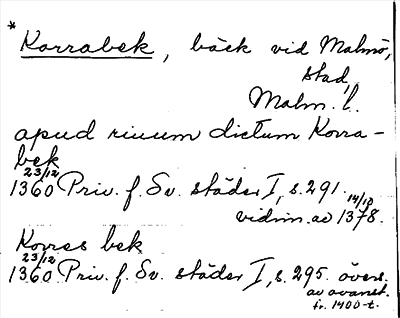 * Korrabek, bäck vid Malmö,
stad,
Malm. l.
apud riuum dictum Korra-
bek
23/12
1360 Priv. f. Sv. städer I, s. 291.
vidim. av 14/10 1378.
Korres bek
23/12
1360 Priv. f. Sv. städer I, s. 295. övers.
av avanst.
fr. 1400-t.